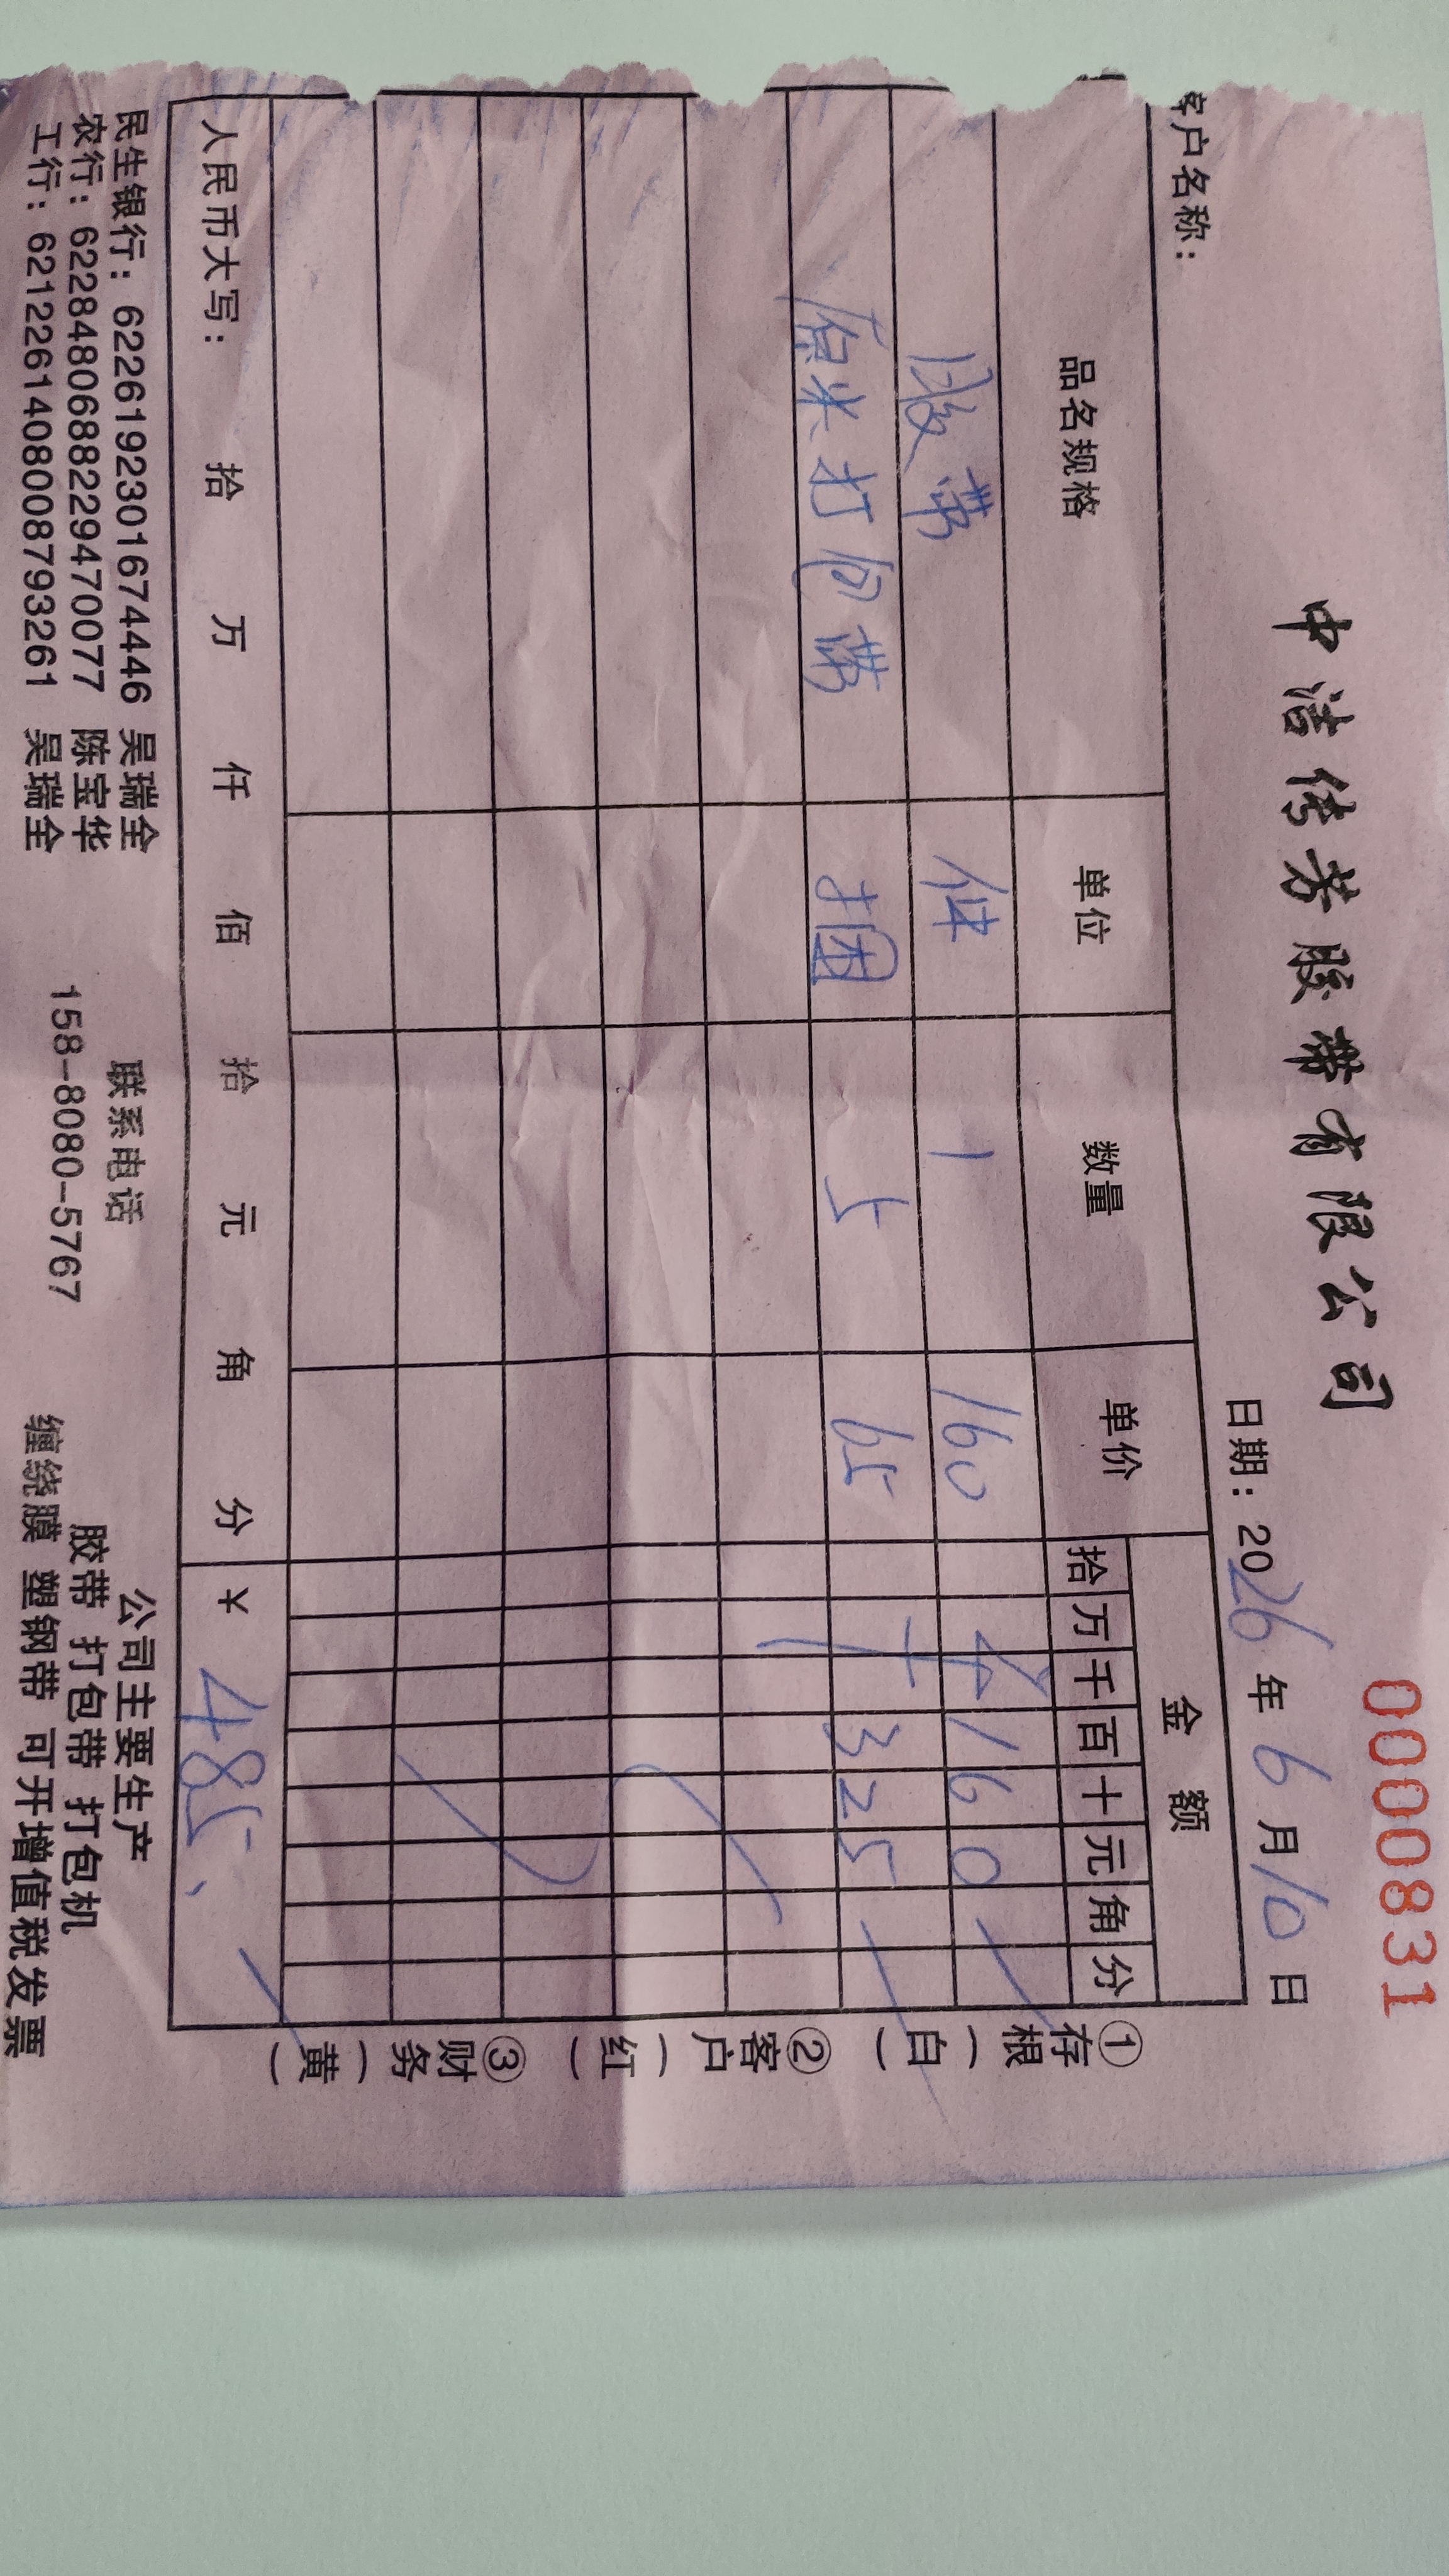 中洁传芳胶带有限公司
0000831
客户名称：
日期：2026年6月10日
品名规格 单位 数量 单价 金额
拾 万 千 百 十 元 角 分
胶带 件 1 160 160
原米打包带 捆 5 65 325
人民币大写： 拾 万 仟 佰 拾 元 角 分 ¥ 485
①存根（白）②客户（红）③财务（黄）
民生银行：6226192301674446 吴瑞全
农行：6228480688229470077 陈宝华
工行：6212261408008793261 吴瑞全
联系电话
158-8080-5767
公司主要生产
胶带 打包带 打包机
缠绕膜 塑钢带 可开增值税发票